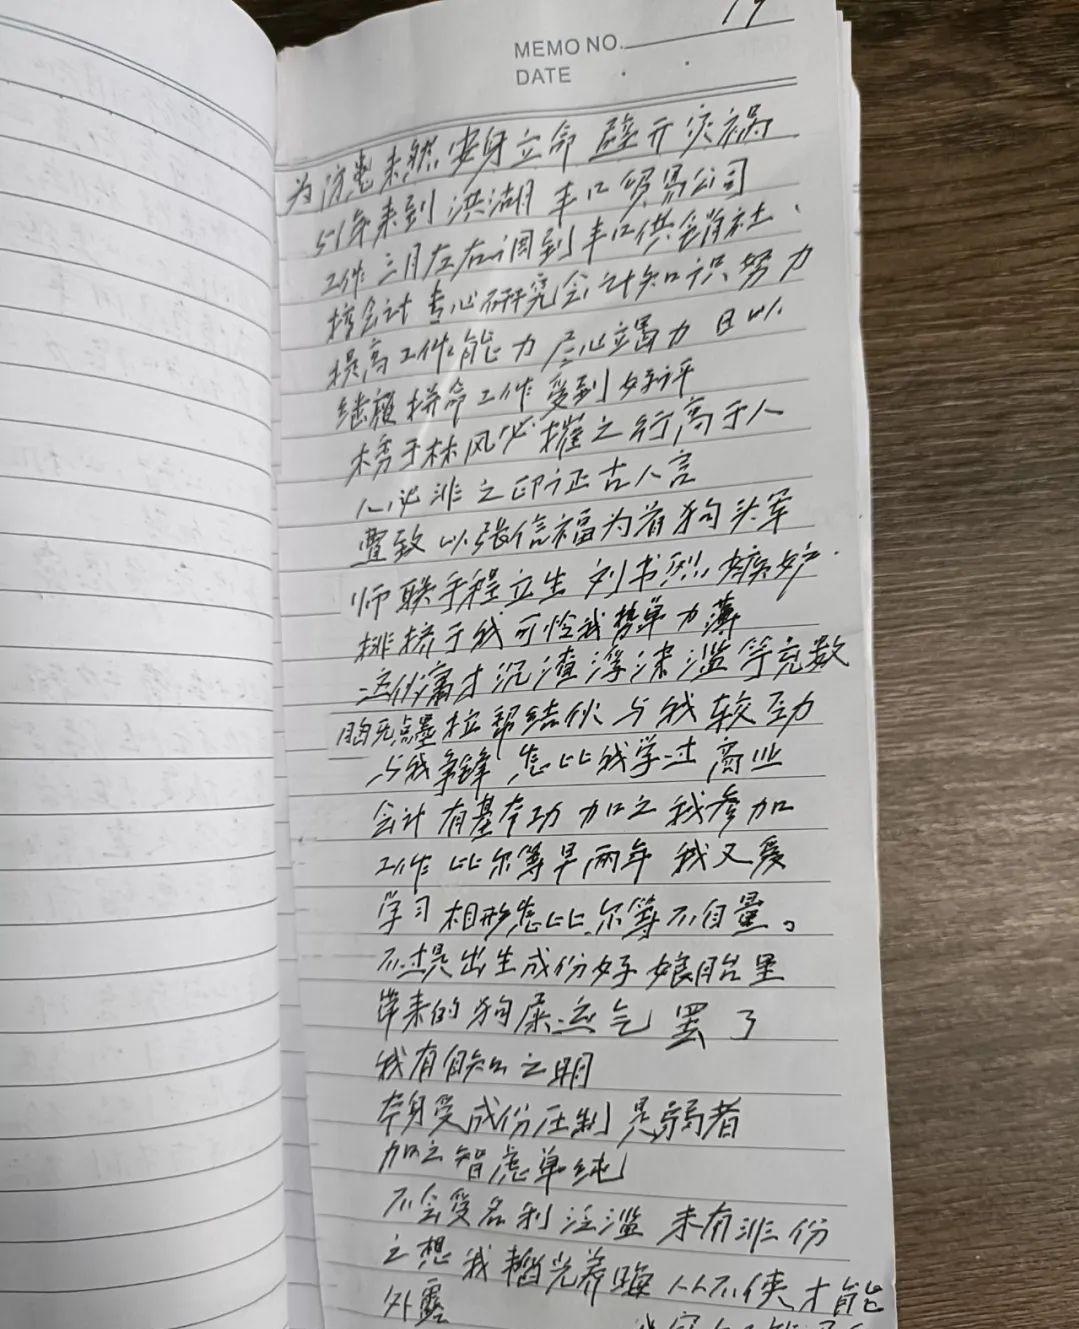 19
MEMO NO.
DATE
为防患未然 安身立命 避开灾祸
51年来到洪湖丰口贸易公司
工作三月左右调到丰口供销社、
搞会计专心研究会计知识努力
提高工作能力尽心竭力日以
继夜拼命工作受到好评
木秀于林风必摧之行高于人
人必非之印证古人言
曹致以张信福为首狗头军
师联手程立生刘书烈嫉妒
排挤于我可怜我势单力薄
这伙庸才沉渣浮沫滥竽充数
胸无点墨拉帮结伙与我较劲
与我争锋怎比我学过商业
会计有基本功加之我参加
工作比尔等早两年我又爱
学习相形怎比尔等不自量。
不过是出生成份好娘胎里
带来的狗屎运气罢了
我有自知之明
本身受成份压制是弱者
加之智虑单纯
不会受名利泛滥未有非份
之想我韬光养晦从不使才能
外露